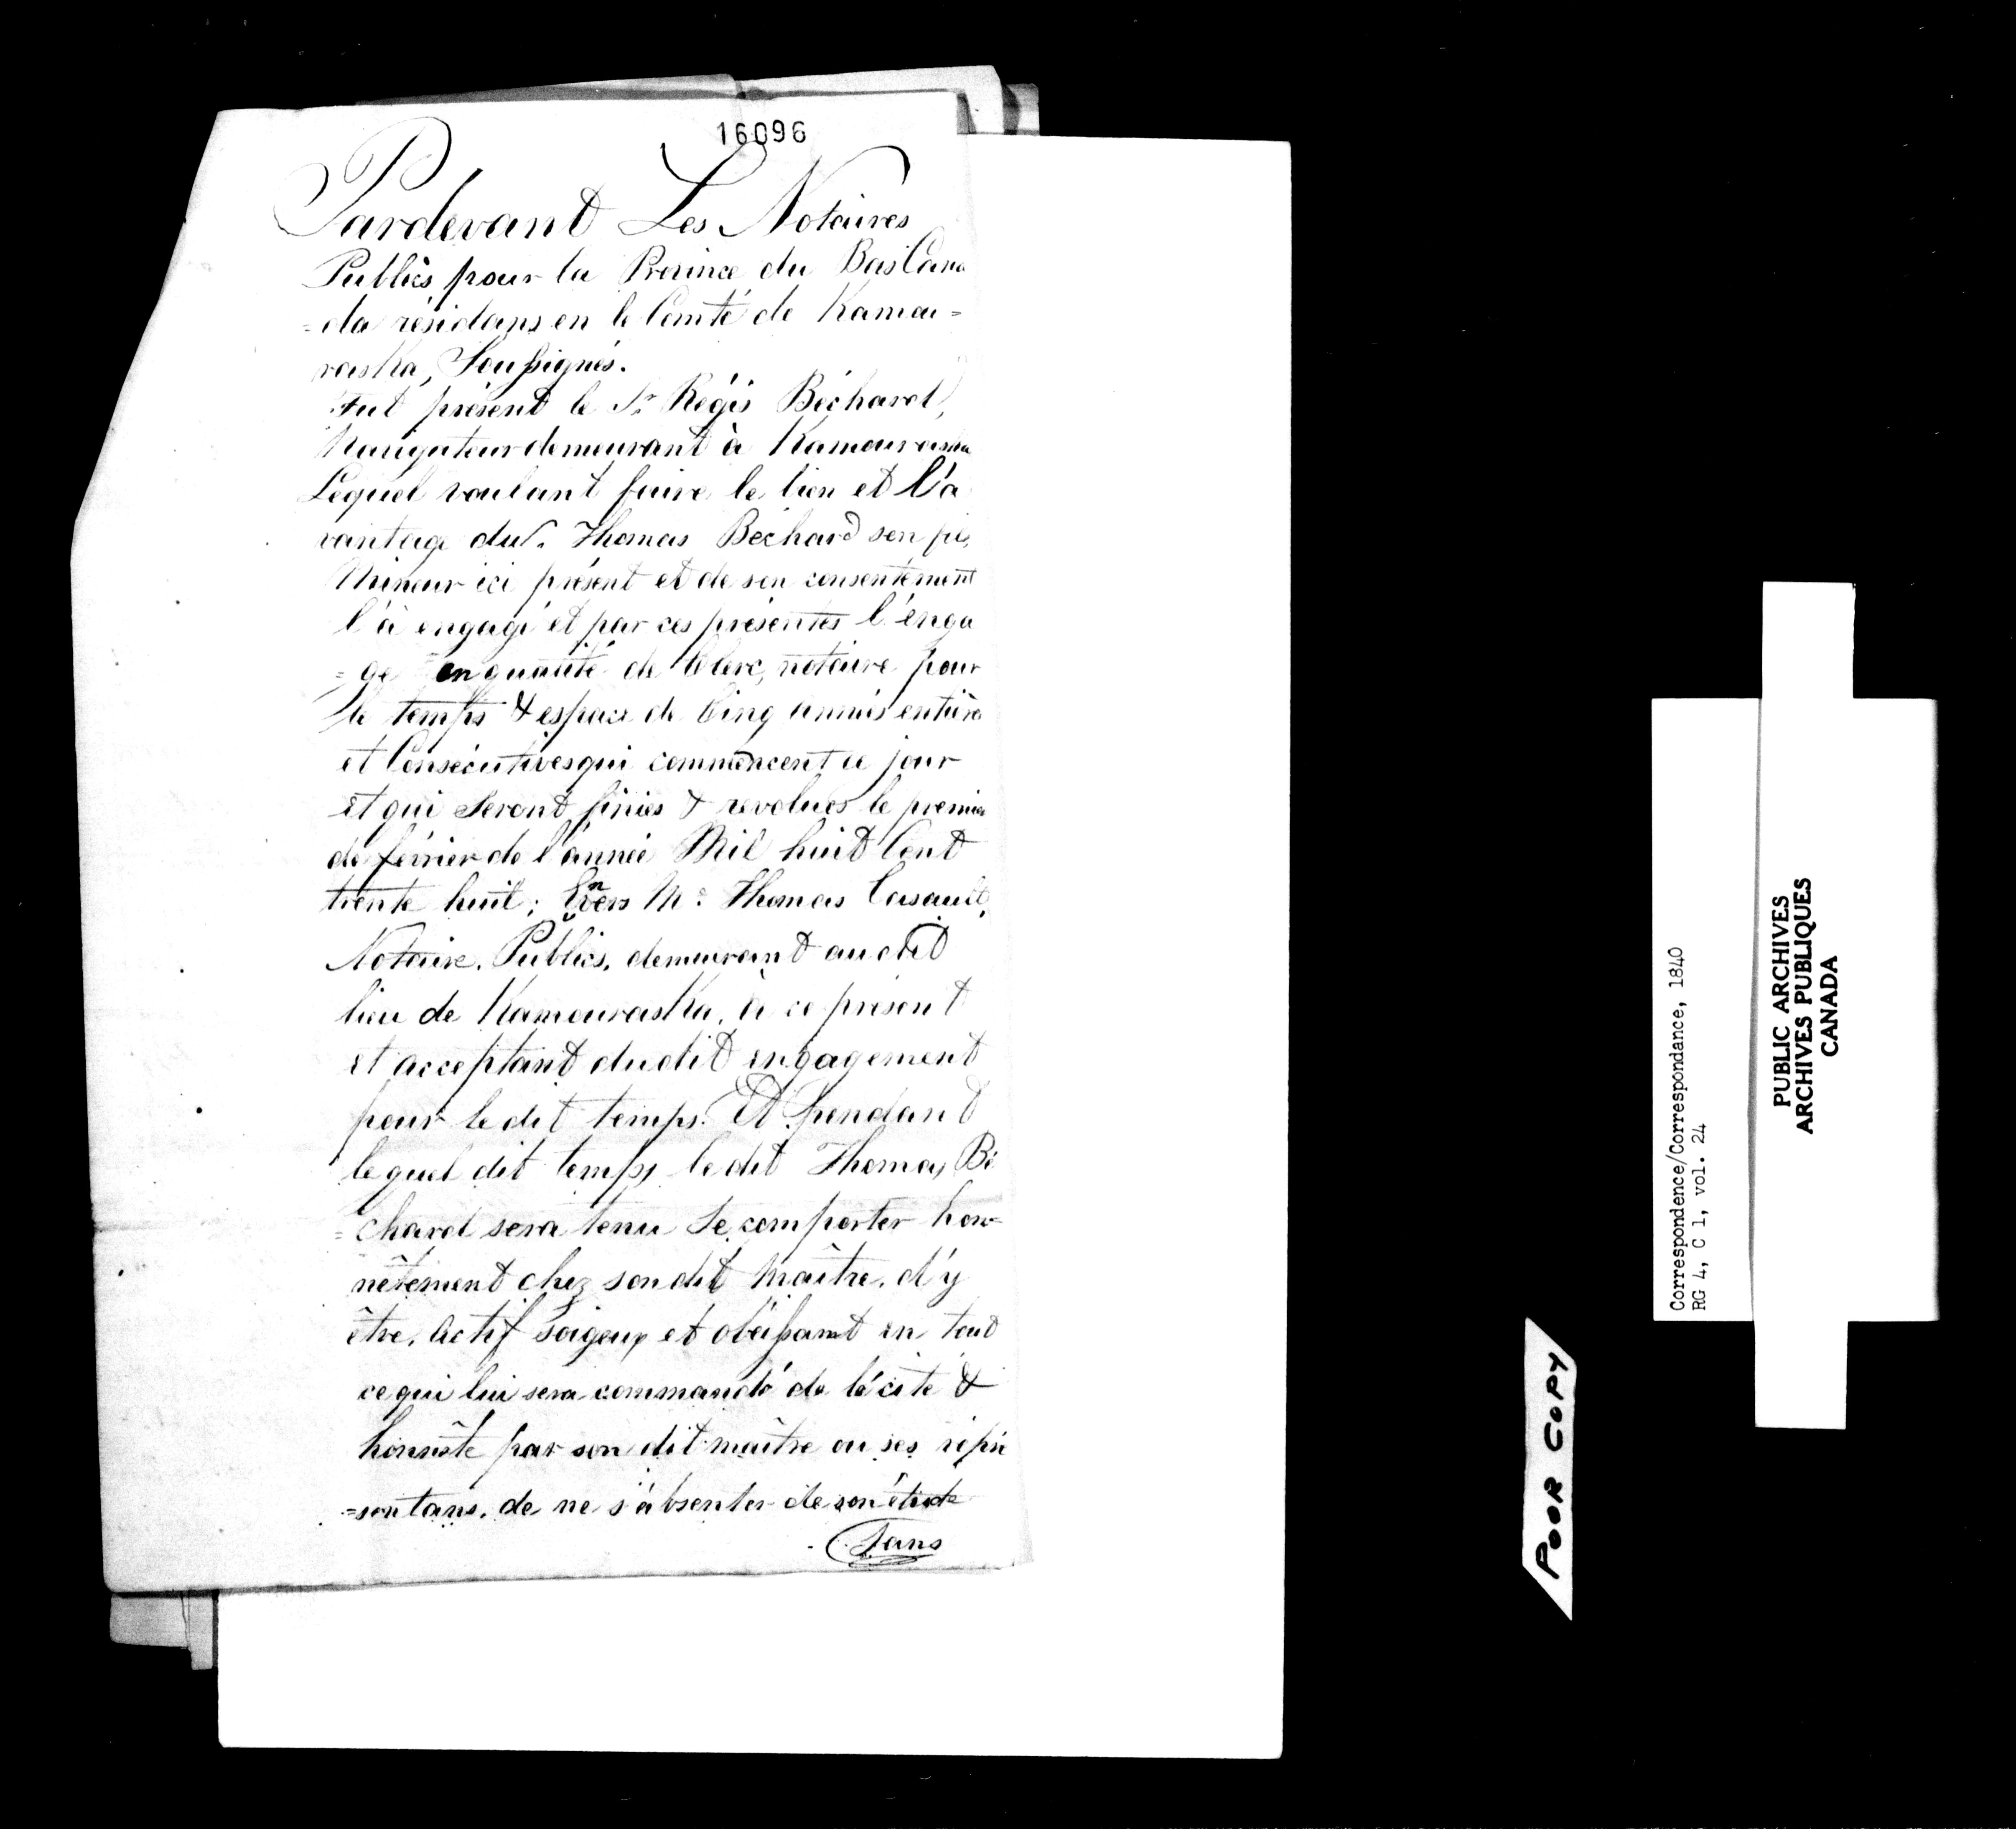 16096
Pardevant Les Notaires
Publics pour la Province du Bas Cana
=da résidans en le Comté de Kamou=
raska, Soussignés.
Fut présent le Sr. Régis Béchard,
Navigateur demeurant à Kamouraska
Lequel voulant faire le bien et l'a
vantage du S. Thomas Béchard son fils,
Mineur ici présent et de son consentement
l'à engagé et par ces présentes l'enga
=ge en qualité de Clerc, notaire pour
le temps & espace de Cinq années entières
et Consécutives qui commencent ce jour
et qui seront finies & revolues le premier
de février de l'année Mil huit Cent
trente huit; Envers Me. Thomas Casault,
Notaire. Publics. demeurant au dit
lieu de Kamouraska, à ce présent
et acceptant dudit engagement
pour le dit temps. Et pendant
lequel dit temps le dit Thomas Bé
=chard sera tenu se comporter hon=
nêtement chez son dit maître, d'y
être, actif soigeux et obéissant en tout
ce qui lui sera commandé de licite &
honnête par son dit maître ou ses répré
=sentans. de ne s'absenter de son étude
Sans
Correspondence/Correspondance, 1840
RG 4, C 1, vol. 24
PUBLIC ARCHIVES
ARCHIVES PUBLIQUES
CANADA
POOR COPY